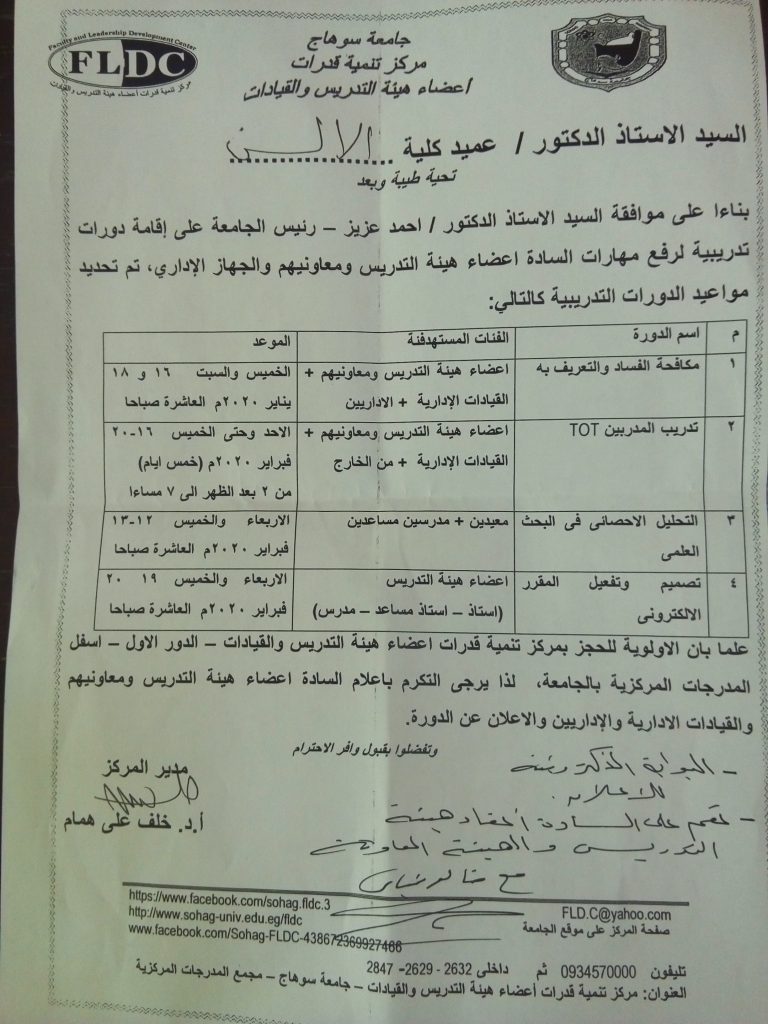 Faculty and Leadership Development Center
FLDC
مركز تنمية قدرات أعضاء هيئة التدريس والقيادات
جامعة سوهاج
مركز تنمية قدرات
أعضاء هيئة التدريس والقيادات
السيد الاستاذ الدكتور / عميد كلية الالسن
تحية طيبة وبعد
بناءا على موافقة السيد الاستاذ الدكتور / احمد عزيز – رئيس الجامعة على إقامة دورات
تدريبية لرفع مهارات السادة اعضاء هيئة التدريس ومعاونيهم والجهاز الإداري، تم تحديد
مواعيد الدورات التدريبية كالتالي:
م اسم الدورة الفئات المستهدفنة الموعد
١ مكافحة الفساد والتعريف به اعضاء هيئة التدريس ومعاونيهم + الخميس والسبت ١٦ و ١٨
القيادات الإدارية + الاداريين يناير ٢٠٢٠م العاشرة صباحا
٢ تدريب المدربين TOT اعضاء هيئة التدريس ومعاونيهم + الاحد وحتى الخميس ١٦-٢٠
القيادات الإدارية + من الخارج فبراير ٢٠٢٠م (خمس ايام)
من ٢ بعد الظهر الى ٧ مساءا
٣ التحليل الاحصائى فى البحث معيدين + مدرسين مساعدين الاربعاء والخميس ١٢-١٣
العلمى فبراير ٢٠٢٠م العاشرة صباحا
٤ تصميم وتفعيل المقرر اعضاء هيئة التدريس الاربعاء والخميس ١٩ ٢٠
الالكترونى (استاذ – استاذ مساعد – مدرس) فبراير ٢٠٢٠م العاشرة صباحا
علما بان الاولوية للحجز بمركز تنمية قدرات اعضاء هيئة التدريس والقيادات – الدور الاول – اسفل
المدرجات المركزية بالجامعة، لذا يرجى التكرم باعلام السادة اعضاء هيئة التدريس ومعاونيهم
والقيادات الادارية والإداريين والاعلان عن الدورة.
وتفضلوا بقبول وافر الاحترام
مدير المركز
أ.د. خلف على همام
- البوابة الالكترونية
للاعلان
- على السادة أعضاء هيئة
التدريس والهيئة المعاونة
مع
https://www.facebook.com/sohag.fldc.3
http://www.sohag-univ.edu.eg/fldc
www.facebook.com/Sohag-FLDC-438672369927466
FLD.C@yahoo.com
صفحة المركز على موقع الجامعة
تليفون 0934570000 ثم داخلى 2632 - 2629- 2847
العنوان: مركز تنمية قدرات أعضاء هيئة التدريس والقيادات – جامعة سوهاج – مجمع المدرجات المركزية